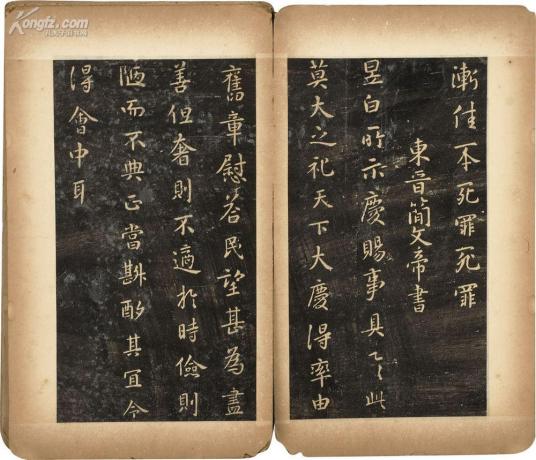 漸佳不死罪死罪
東晉簡文帝書
昱白所示慶賜事具之此
莫大之祀天下大慶得率由
舊章慰荅民望甚為盡
善但奢則不適於時儉則
陋而不典正當斟酌其宜令
得會中耳
Kongfz.com
孔夫子旧书网